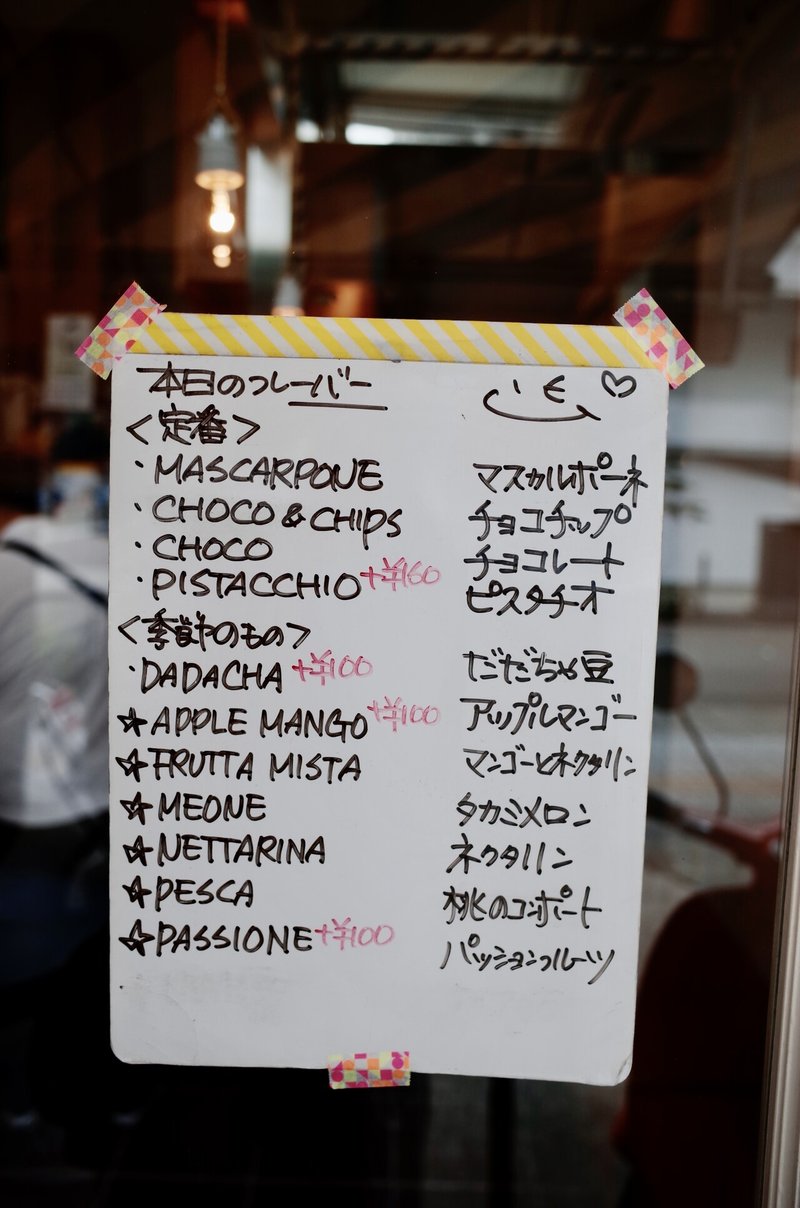 本日のフレーバー
<定番>
・MASCARPONE マスカルポーネ
・CHOCO & CHIPS チョコチップ
・CHOCO チョコレート
・PISTACCHIO +¥160 ピスタチオ
<季節のもの>
・DADACHA +¥100 だだちゃ豆
☆APPLE MANGO +¥100 アップルマンゴー
☆FRUTTA MISTA マンゴーとネクタリン
☆MEONE タカミメロン
☆NETTARINA ネクタリン
☆PESCA 桃のコンポート
☆PASSIONE +¥100 パッションフルーツ